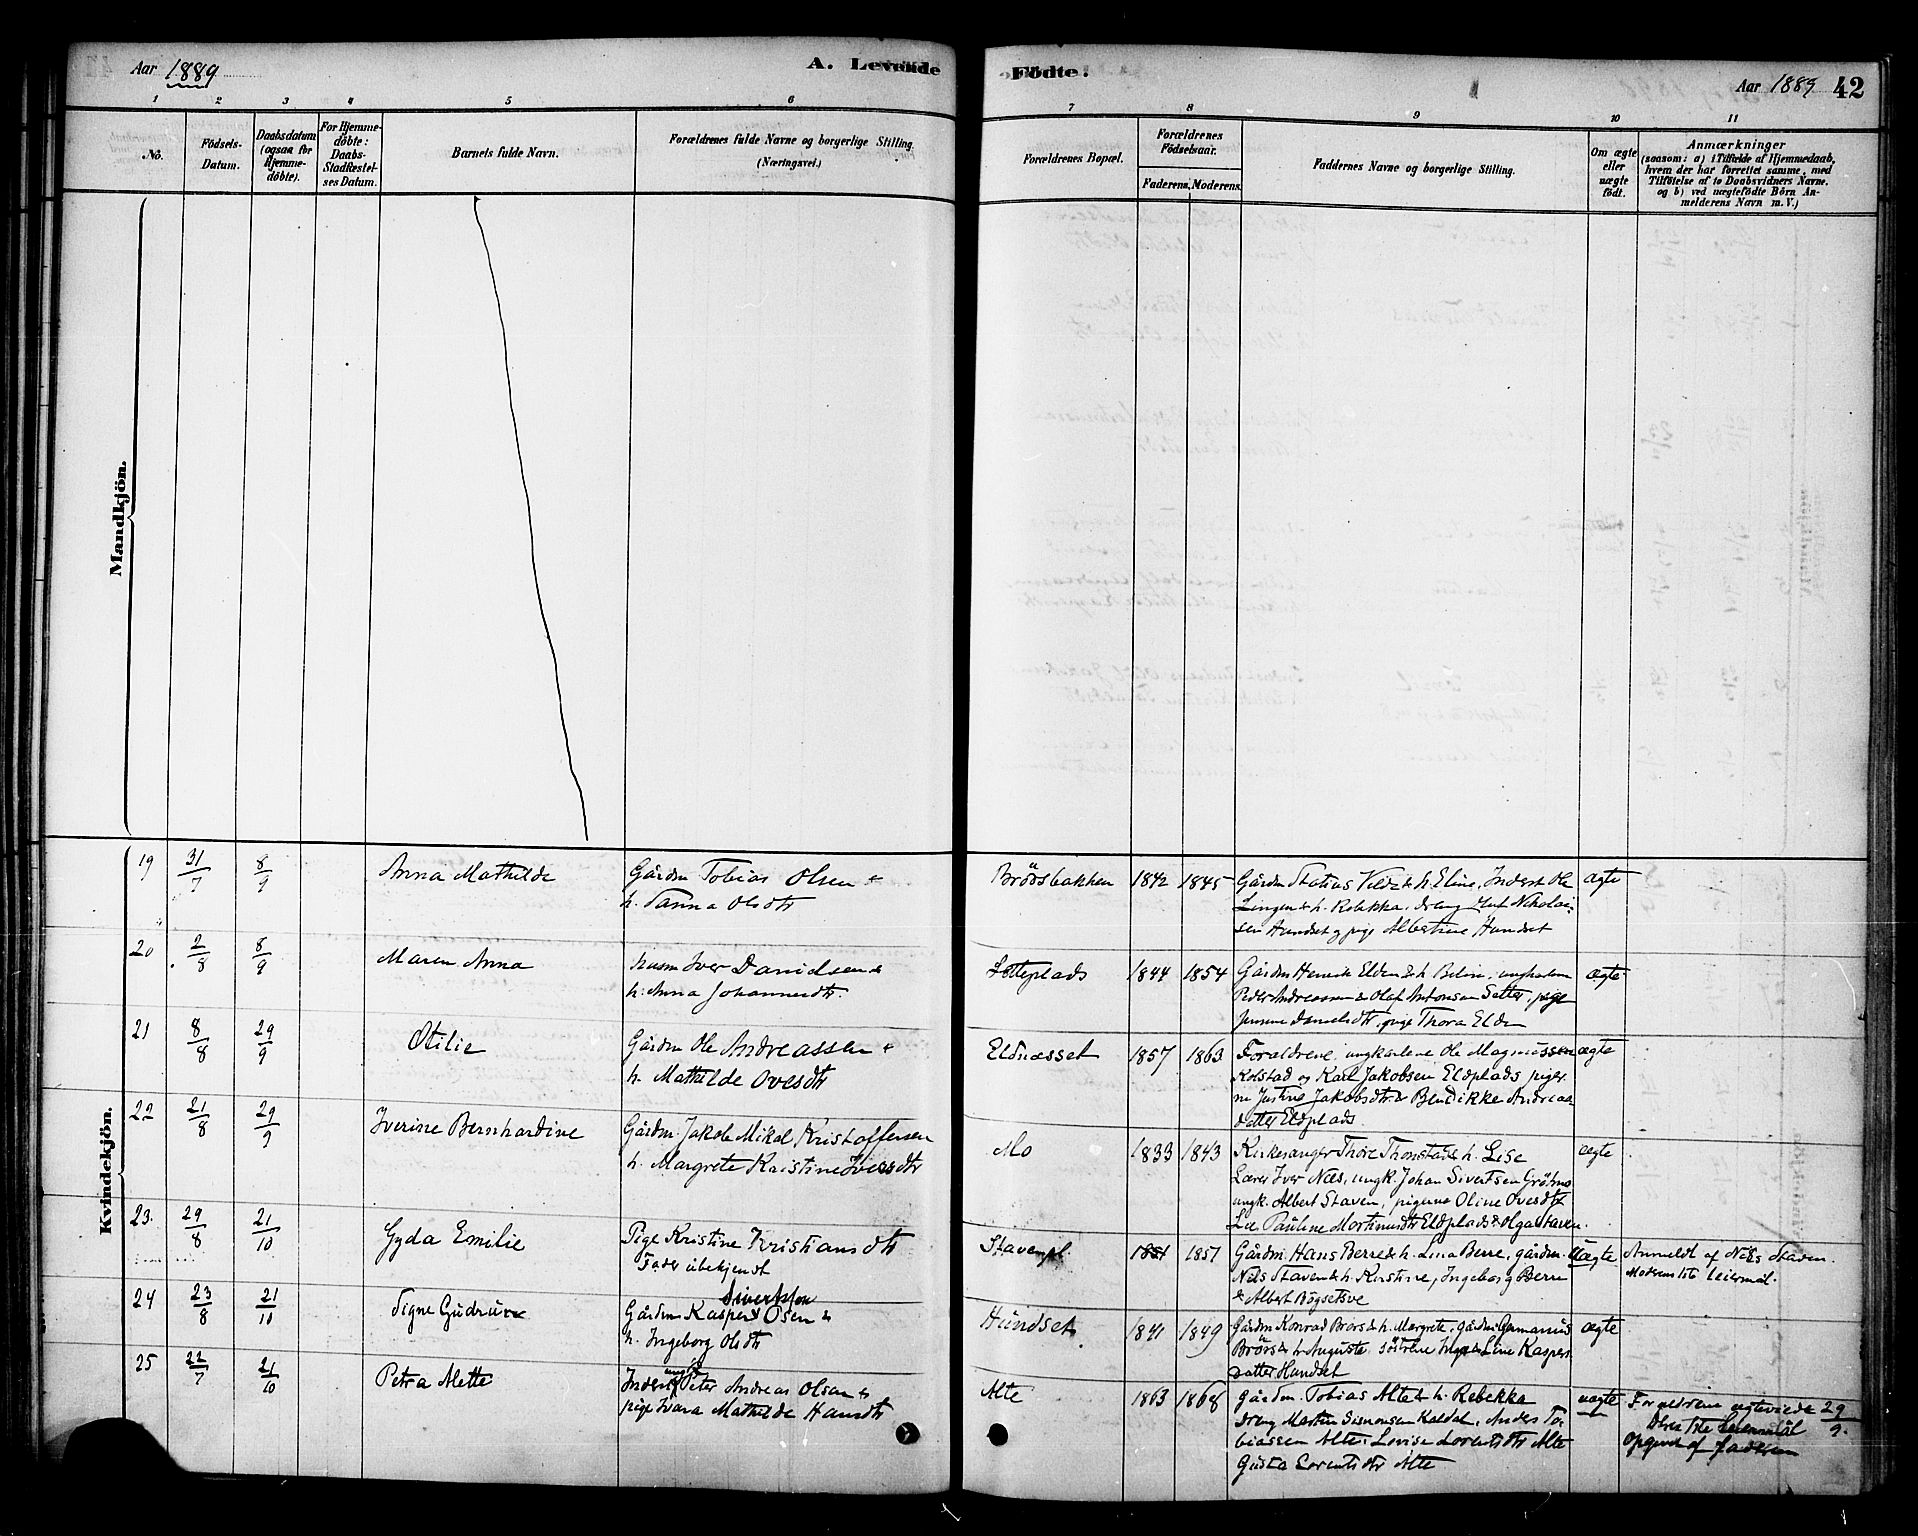 Aar 1889
A. Levende
Fødte.
Aar 1889
42
1 2 3 4 5 6 7 8 9 10 11
No.
Fødsels-
Datum.
Daabsdatum
(ogsaa for
Hjemme-
døbte).
For Hjemme-
døbte:
Daabs-
Stadfæstel-
ses Datum.
Barnets fulde Navn.
Forældrenes fulde Navne og borgerlige Stilling.
(Næringsvei.)
Forældrenes Bopæl.
Forældrenes
Fødselsaar.
Faderens. Moderens.
Faddernes Navne og borgerlige Stilling.
Om ægte
eller
uægte
født.
Anmærkninger
(saasom: a) i Tilfælde af Hjemmedaab,
hvem der har forrettet samme, med
Tilføielse af to Daabsvidners Navne.
og b) ved uægtefødte Börn An-
melderens Navn m. V.)
Mandkjön.
Kvindekjön.
19 31/7 8/9 Anna Mathilde
Gårdm Tobias Olsen &
h. Tanna Olsdtr
Bröðsbakken 1842 1845
Gårdm Statius Veldt & h. Eline, Inderst Ole
Lingen & h. Rebekka. dreng Nikolai-
sen Hundset og pige Albertine Hundset
ægte
20 2/8 8/9 Maren Anna
husm Iver Danielsen &
h. Anna Johannesdtr.
1844 1854
Gårdm Henrik Elden & h. Beline, ungkarlene
Peder Andreassen & Olaf Antonsen Setter, pige
Jensine Danielsdtr, pige Thora Elden
ægte
21 8/8 29/9 Otilie
Gårdm Ole Andreassen &
h. Mathilde Ovesdtr
Eldnæsset 1857 1863
Forældrene, ungkarlene Ole Magnussen
Kolstad og Karl Jakobsen Eldplads piger-
ne Justine Jakobsdtr & Bendikke Andreas-
datter Eldplads.
ægte
22 21/8 29/9 Iverine Bernhardine
Gårdm. Jakob Mikal Kristoffersen
h. Margrete Kristine Iversdtr
Mo 1833 1843
Kirkesanger Thore Thonstad & h. Lise
Lærer Iver Næs, ungk. Johan Sivertsen Gröhms
ungk. Albert Staven, pigerne Oline Ovesdtr
Lee Pauline Mortinusdtr Eldplads & Olga Staven.
ægte
23. 29/8 21/10 Gyda Emilie
Pige Kristine Kristiansdtr
Fader ubekjendt
Stavenpl. 1857
Gårdm. Hans Berre & h. Lina Berre, gårdm.
Nils Staven & h. Kirstine, Ingeborg Berre
& Albert Bögsetsve
uægte
Anmeldt af Nils Staven.
Moderens 1ste Leiermål.
24 23/8 21/10 Signe Gudrun
Sivertsen
Gårdm Kasper Osen &
h. Ingeborg Olsdtr
Hundset 1841 1849
Gårdm Konrad Brørs & h. Margrete. gårdm Germanius
Brørs & h Auguste. söstrene Inga & Line Kaspers-
datter Hundset
ægte
25 22/7 21/10 Petra Mette
ungk
Inderst Peter Andreas Olsen &
pige Ivara Mathilde Hansdtr
Alte 1863 1868
Gårdm. Tobias Alte & h. Rebekka
Dreng Martin Simonsen Kaldal. Anders To-
biassen Alte. Lovise Lorentsdtr Alte
Gusta Lorentsdtr Alte
uægte
Forældrene ægteviede 29/9.
Deres 1ste Leiermål
Opgivet af faderen